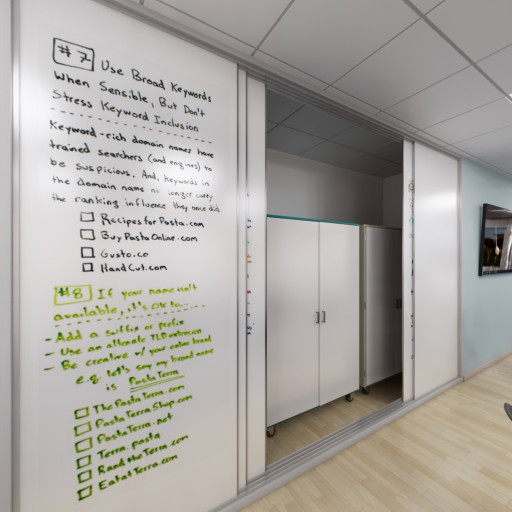 #7 Use Broad Keywords
When Sensible, But Don't
Stress Keyword Inclusion
Keyword-rich domain names have
trained searchers (and engines) to
be suspicious. And, keywords in
the domain name no longer carry
the ranking influence they once did.
RecipesforPasta.com
BuyPastaOnline.com
Gusto.co
HandCut.com
#8 If your name isn't
available, it's OK to...
- Add a suffix or prefix
- Use an alternate TLD extension
- Be creative w/ your brand
e.g. let's say my brand name
is PastaTerra
ThePastaTerra.com
PastaTerraShop.com
PastaTerra.net
Terra.pasta
RandtheTerra.com
EatatTerra.com